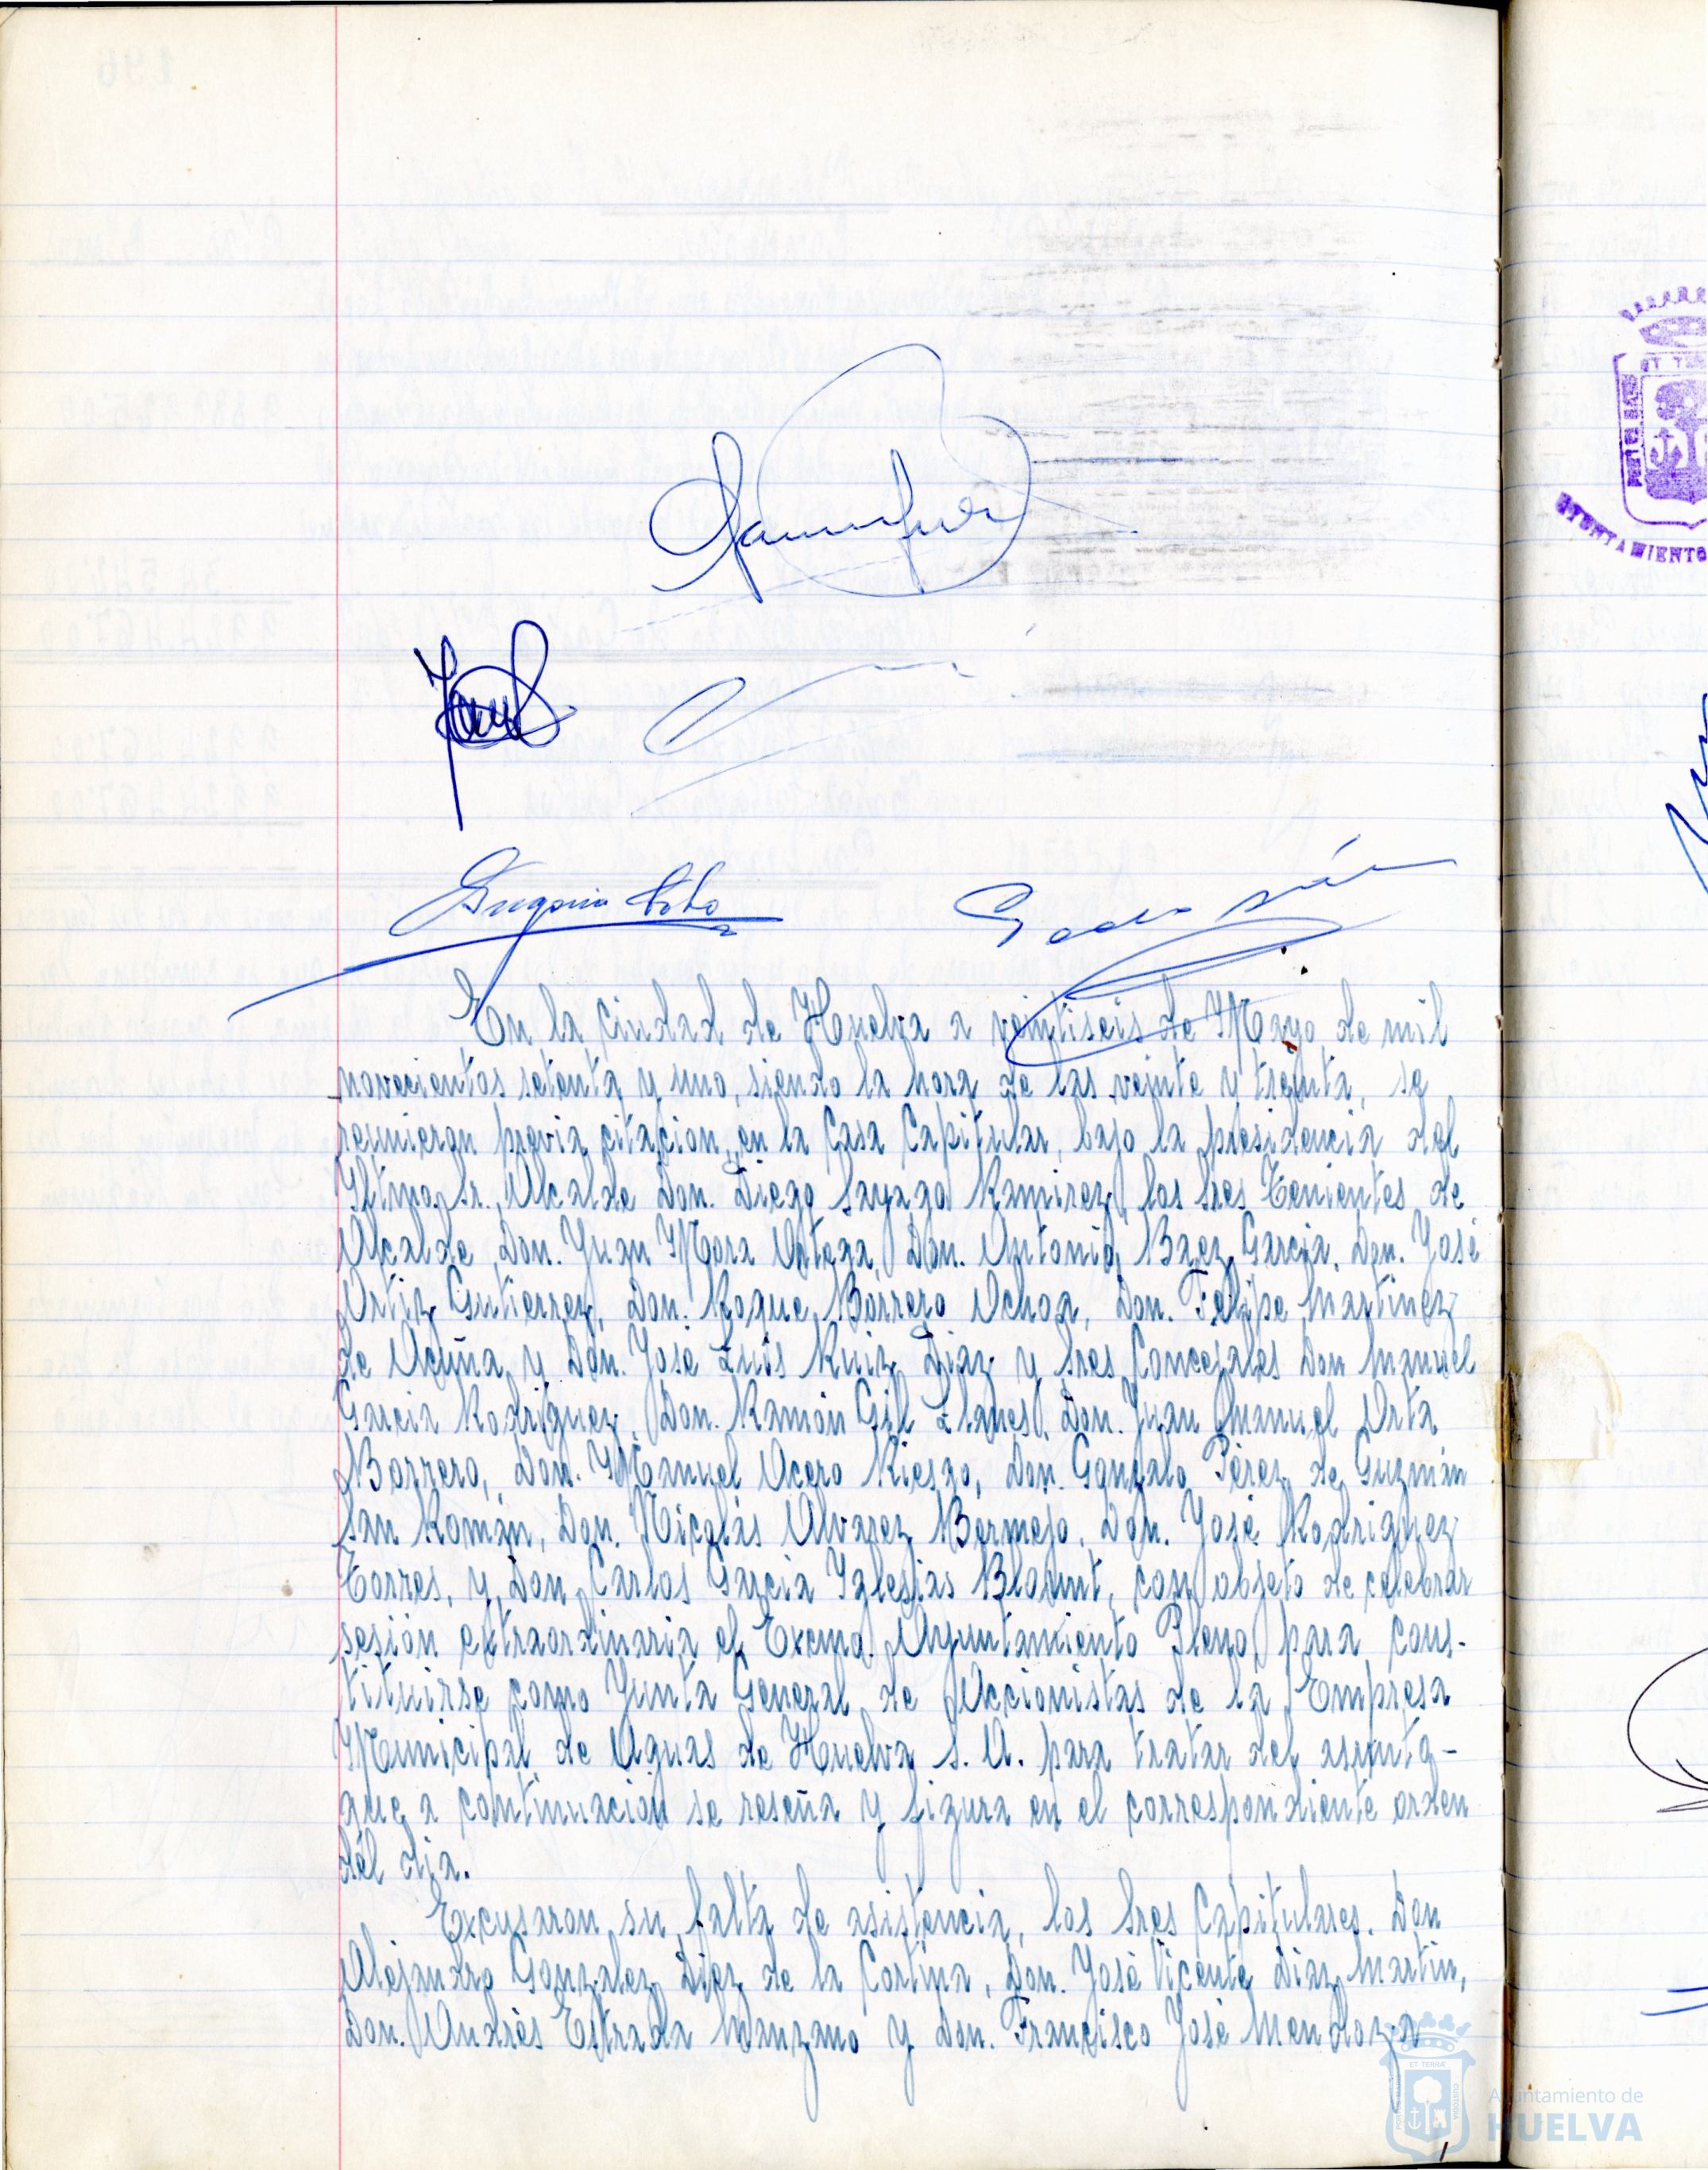 En la ciudad de Huelva a veintiseis de Mayo de mil
novecientos setenta y uno, siendo la hora de las veinte y treinta, se
reunieron previa citacion, en la Casa Capitular, bajo la presidencia del
Iltmo. Sr. Alcalde Don. Diego Sayago Ramirez, los Sres Tenientes de
Alcalde, Don. Juan Mora Ortega, Don. Antonio Baez Garcia, Don. José
Ortiz Gutierrez, Don. Roque Borrero Ochoa, Don. Felipe Martinez
de Acuña y Don. José Luis Ruiz Diaz y Sres Concejales Don Manuel
Garcia Rodriguez, Don. Ramón Gil Llanes, Don. Juan Manuel Orta
Borrero, Don. Manuel Acero Riesgo, Don. Gonzalo Pérez de Guzmán
San Román, Don. Nicolás Alvarez Bermejo, Don. José Rodriguez
Torres, y Don Carlos Garcia Yglesias Blaunt, con objeto de celebrar
sesión extraordinaria el Excmo. Ayuntamiento Pleno, para cons-
tituirse como Junta General de Accionistas de la Empresa
Municipal de Aguas de Huelva S. A. para tratar del asunto-
que a continuación se reseña y figura en el correspondiente orden
del dia.
Excusaron su falta de asistencia, los Sres Capitulares. Don
Alejandro Gonzalez Diez de la Cortina, Don. José Vicente Diaz Martin,
Don. Andrés Estrada Manzano y Don. Francisco José Mendoza
AYUNTAMIENTO
Ayuntamiento de
HUELVA